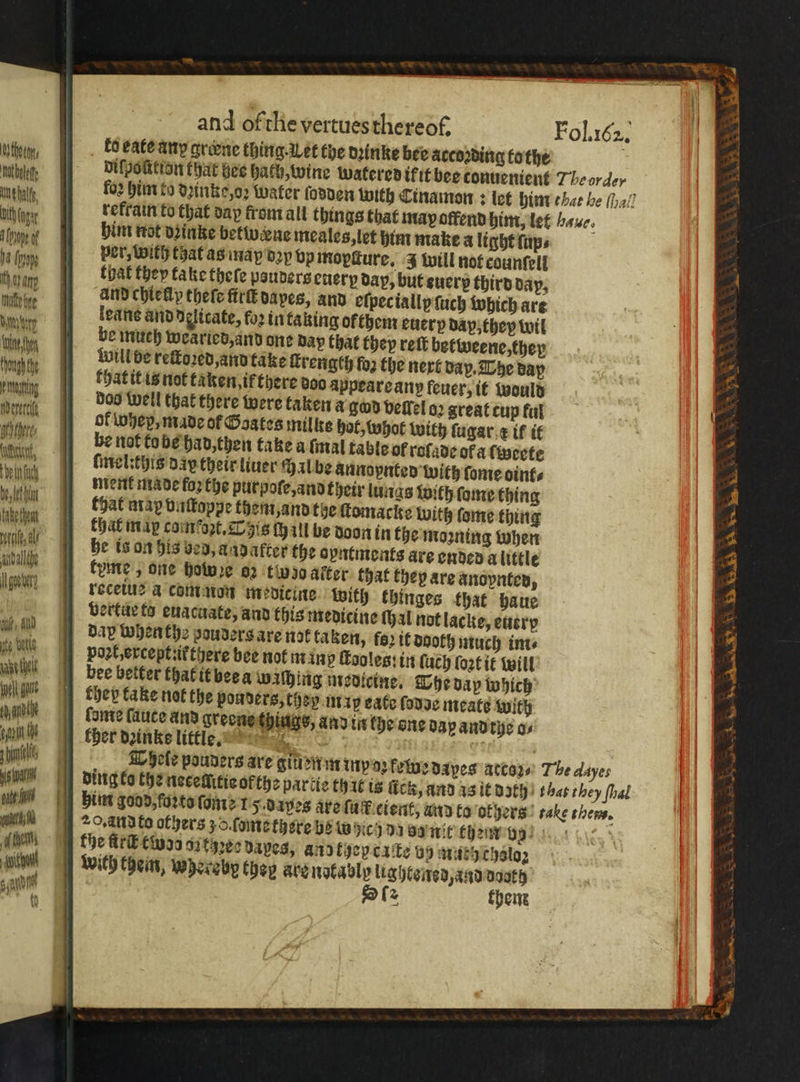 and of the vertues thereof.
Fol.162.
to eate any greene thing. Let the drinke bee according to the
disposition that hee hath, wine watered if it bee conuenient
for him to drinke, or water sodden with Cinamon : let him
refrain to that day from all things that may offend him, let
him not drinke betweene meales, let him make a light sup-
per, with that as may dry vp moysture. I will not counsell
that they take these pouders euery day, but euery third day,
and chiefly these first dayes, and especially such which are
leane and delicate, for in taking of them euery day, they wil
be much wearied, and one day that they rest betweene, they
will be restored, and take strength for the next day. The day
that it is not taken, if there doo appeare any feuer, it would
doo well that there were taken a good vessel or great cup ful
of whey, made of Goates milke hot, whot with sugar & if it
be not to be had, then take a smal table of rosade of a sweete
smel: this day their liuer shal be annoynted with some oint-
ment made for the purpose, and their lungs with some thing
that may vnstoppe them, and the stomacke with some thing
that may comfort. This shall be doon in the morning when
he is on his bed, and after the oyntments are ended a little
tyme, one howre or two after that they are anoynted,
receiue a common medicine with thinges that haue
vertue to euacuate, and this medicine shal not lacke, euery
day when the pouders are not taken, for it dooth much im-
port, except if there bee not many stooles: in such sort it will
bee better that it bee a washing medicine. The day which
they take not the pouders, they may eate sodde meate with
some sauce and greene things, and in the one day and the o-
ther drinke little.
These pouders are giuen many or fewe dayes accor-
ding to the necessitie of the partie that is sick, and as it doth
him good, for to some 15. dayes are sufficient, and to others
20. and to others 30. some there be which do vomit them vp
the first two or three dayes, and they caste vp much cholor
with them, whereby they are notably lightened, and dooth
The order
that he shall
haue.
The dayes
that they shal
take them.
Ss2
them